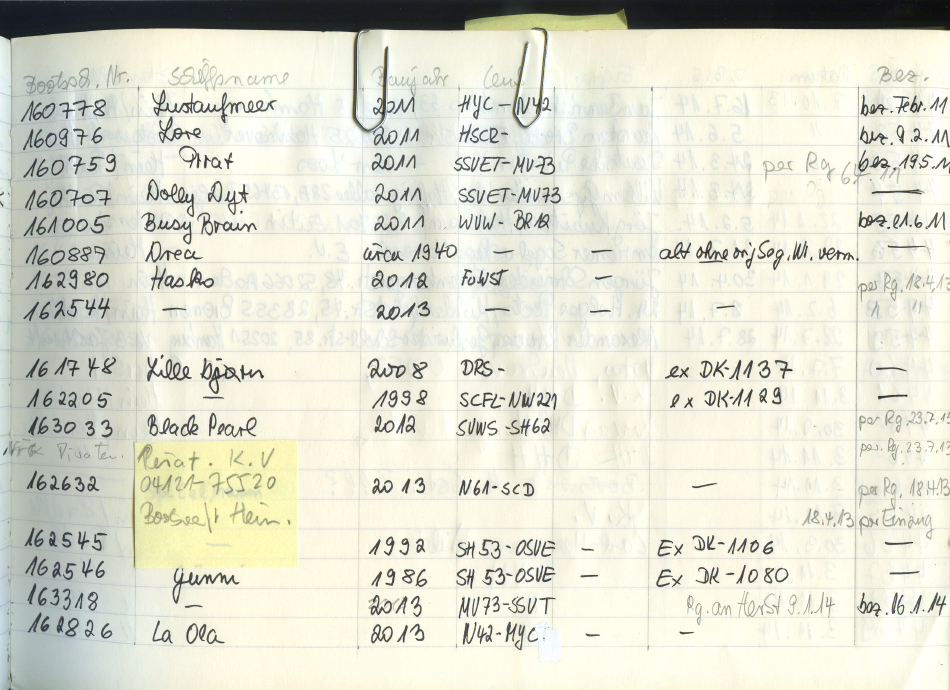 Bootsb. Nr. Schiffsname Baujahr Bez.
160778 Lustaufmeer 2011 HYC - N42 bez. Febr. 11
160976 Lore 2011 HSCR- bez. 9.2.11
160759 Pirat 2011 SSVET-MV73 per Rg bez. 19.5.11
160707 Dolly Dyt 2011 SSVET-MV73 —
161005 Busy Brain 2011 WVW - BR12 bez. 21.6.11
160889 Drea circa 1940 — — alt ohne orig Seg. Nr. verm. —
162980 Hasko 2012 FGWST — per Rg. 18.4.13
162544 — 2013 — — — " "
161748 Lille Bjørn 2008 DRS- ex DK-1137 —
162205 — 1998 SCFL-NW221 ex DK-1129 —
163033 Black Pearl 2012 SVWS-SH62 per Rg. 23.7.13
per. Rg. 23.7.13
Privat. K.V
04121-75520
162632 2013 N61-SCD — per Rg. 18.4.13
18.4.13 per Einzug
162545 — 1992 SH53-OSVE — Ex DK-1106 —
162546 Günni 1986 SH53-OSVE — Ex DK-1080 —
163318 — 2013 MV73-SSVT Rg. an HerSt 9.1.14 bez. 16.1.14
162826 La Ola 2013 N42-HYC — —